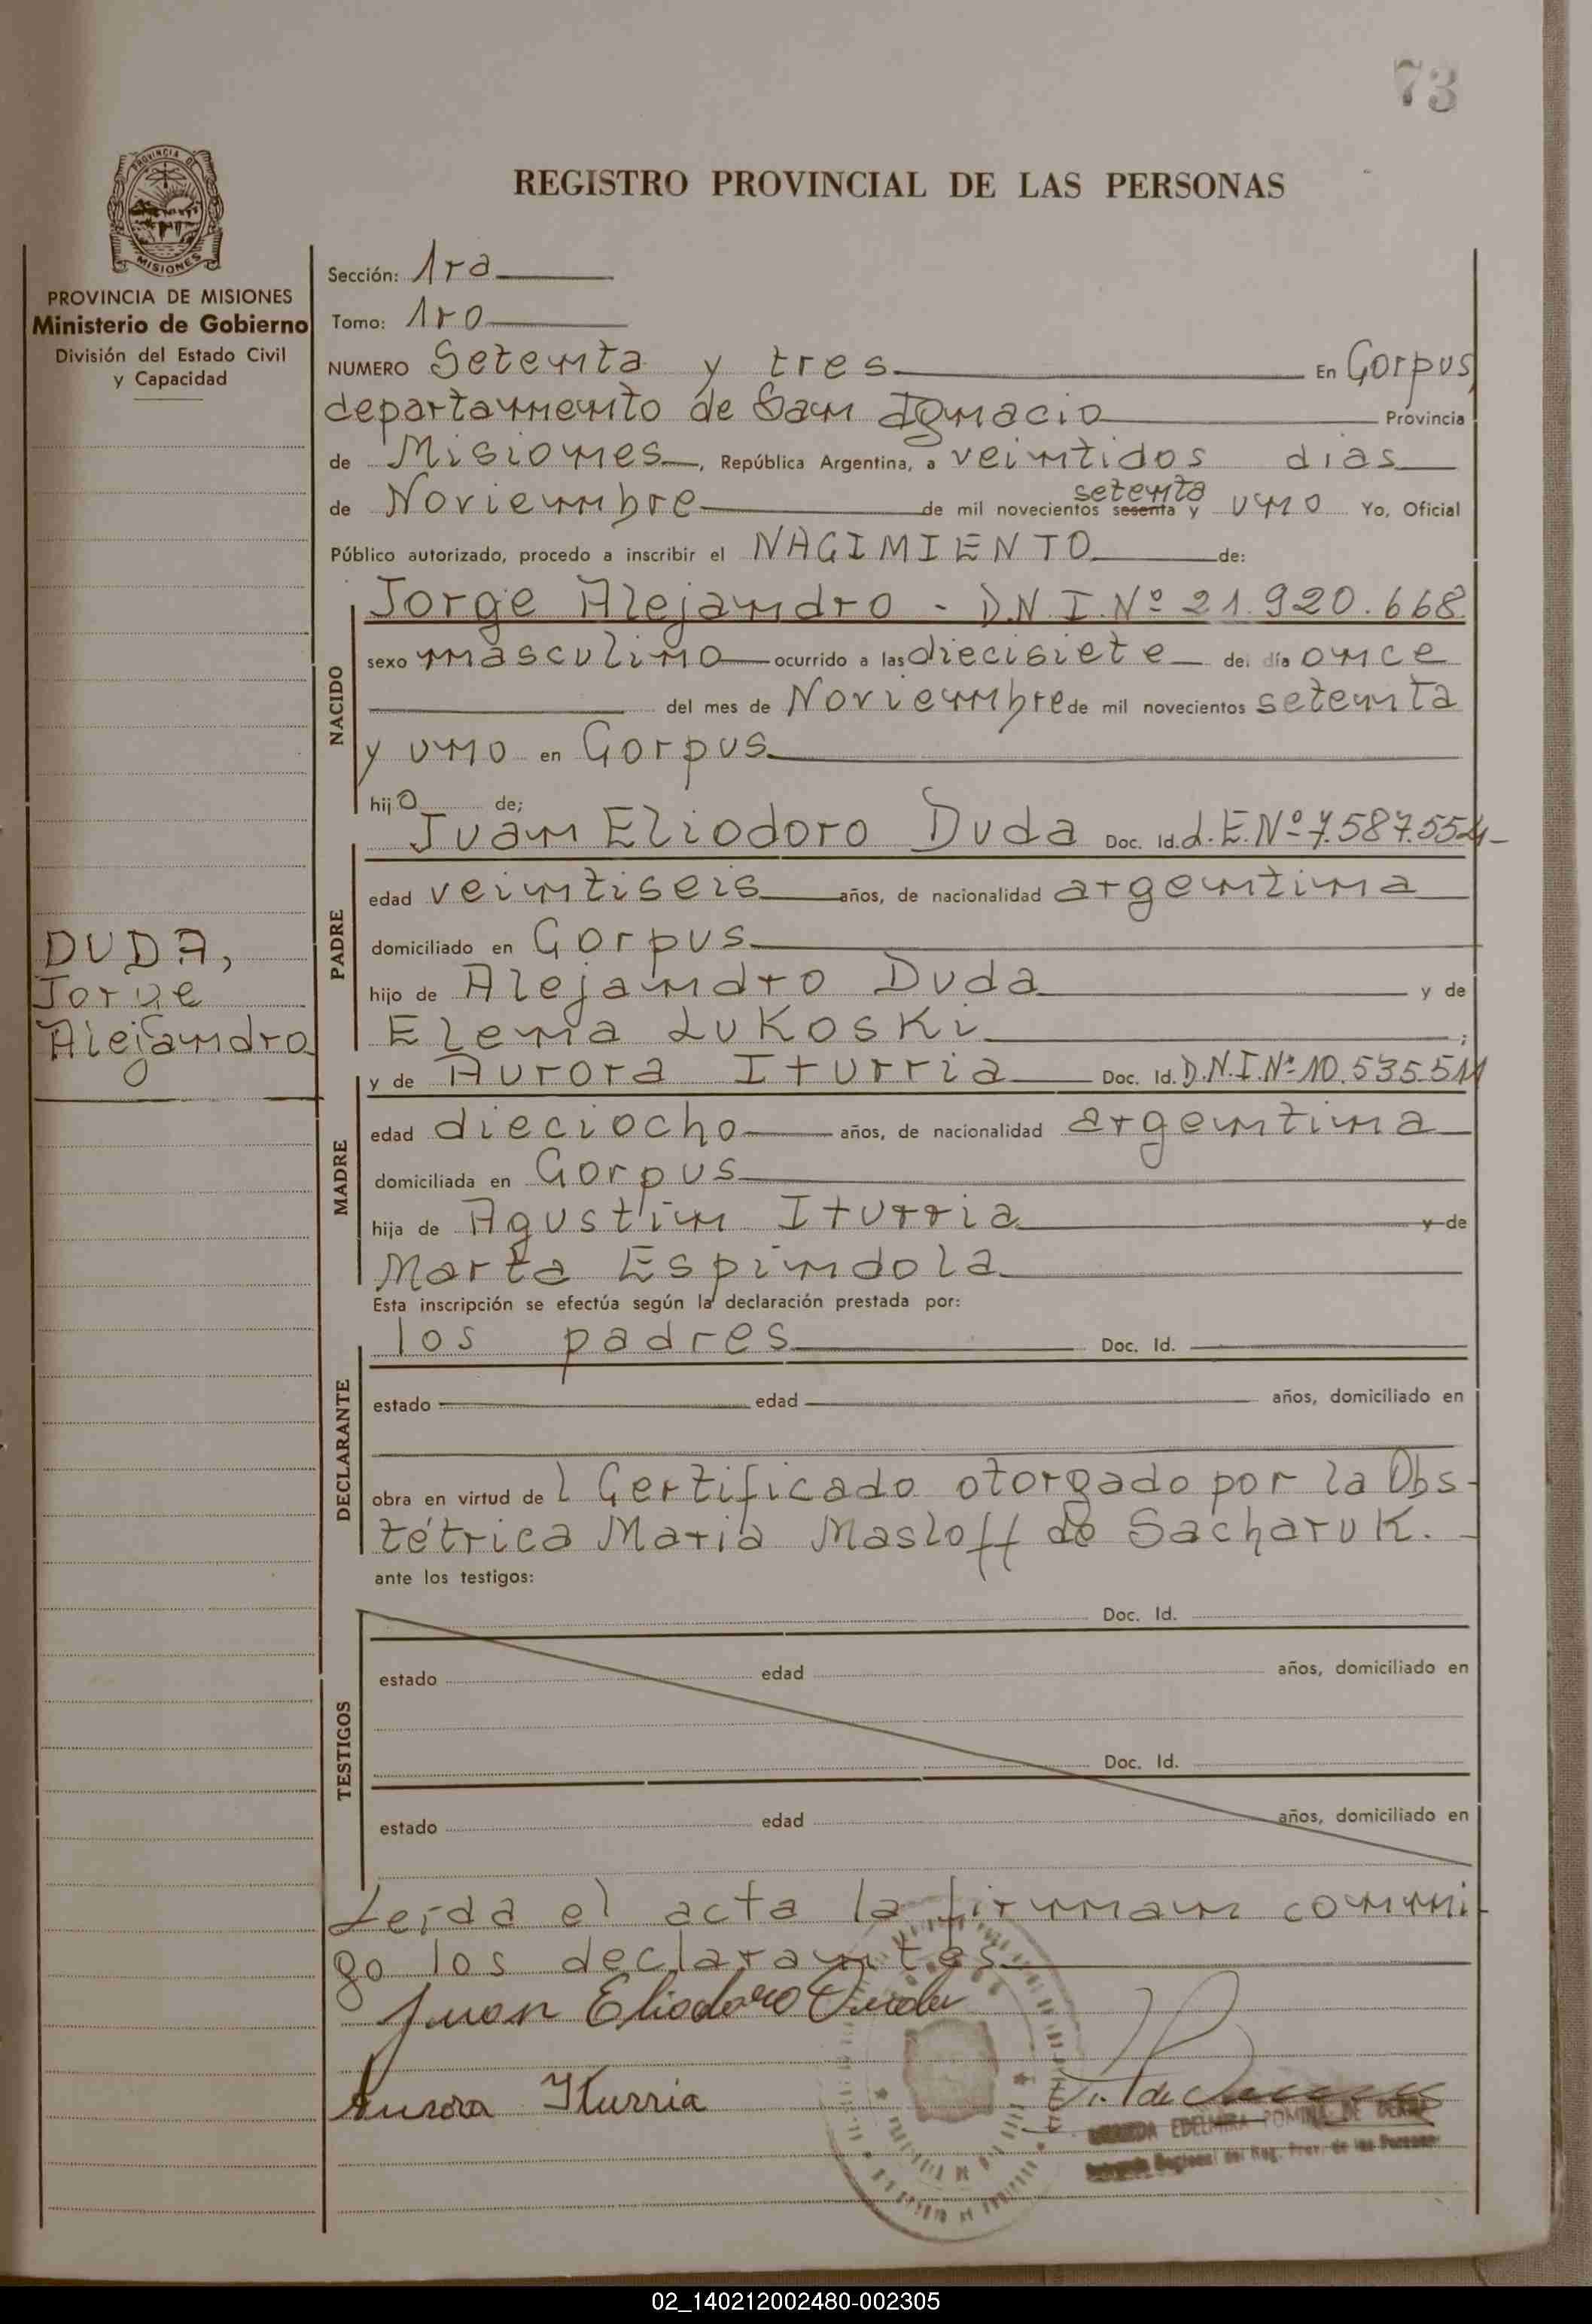 73
PROVINCIA DE
MISIONES
PROVINCIA DE MISIONES
Ministerio de Gobierno
División del Estado Civil
y Capacidad
REGISTRO PROVINCIAL DE LAS PERSONAS
Sección: 1ra
Tomo: 1ro
NUMERO Setenta y tres En Corpus,
departamento de San Ignacio Provincia
de Misiones, República Argentina, a veintidos dias
de Noviembre de mil novecientos sesenta setenta y uno Yo, Oficial
Público autorizado, procedo a inscribir el NACIMIENTO de:
NACIDO
Jorge Alejandro - D.N.I. Nº 21.920.668
sexo masculino ocurrido a las diecisiete del día once
del mes de Noviembre de mil novecientos setenta
y uno en Corpus
hijo de;
PADRE
Juan Eliodoro Duda Doc. Id. L.E. Nº 7.587.554-
edad veintiseis años, de nacionalidad argentina
domiciliado en Corpus
hijo de Alejandro Duda y de
Elena Lukoski ;
DUDA,
Jorge
Alejandro
MADRE
y de Aurora Iturria Doc. Id. D.N.I. Nº 10.535.511
edad dieciocho años, de nacionalidad argentina
domiciliada en Corpus
hija de Agustin Iturria y de
Marta Espindola
Esta inscripción se efectúa según la declaración prestada por:
DECLARANTE
los padres Doc. Id.
estado edad años, domiciliado en
obra en virtud de l Certificado otorgado por la Obs-
tétrica Maria Masloff de Sacharuk.
ante los testigos:
TESTIGOS
Doc. Id.
estado edad años, domiciliado en
Doc. Id.
estado edad años, domiciliado en
Leida el acta la firman conmi
go los declarantes
Juan Eliodoro Duda
Aurora Iturria
EDELMIRA DE
Regional del Reg. Prov. de las Personas
02_140212002480-002305